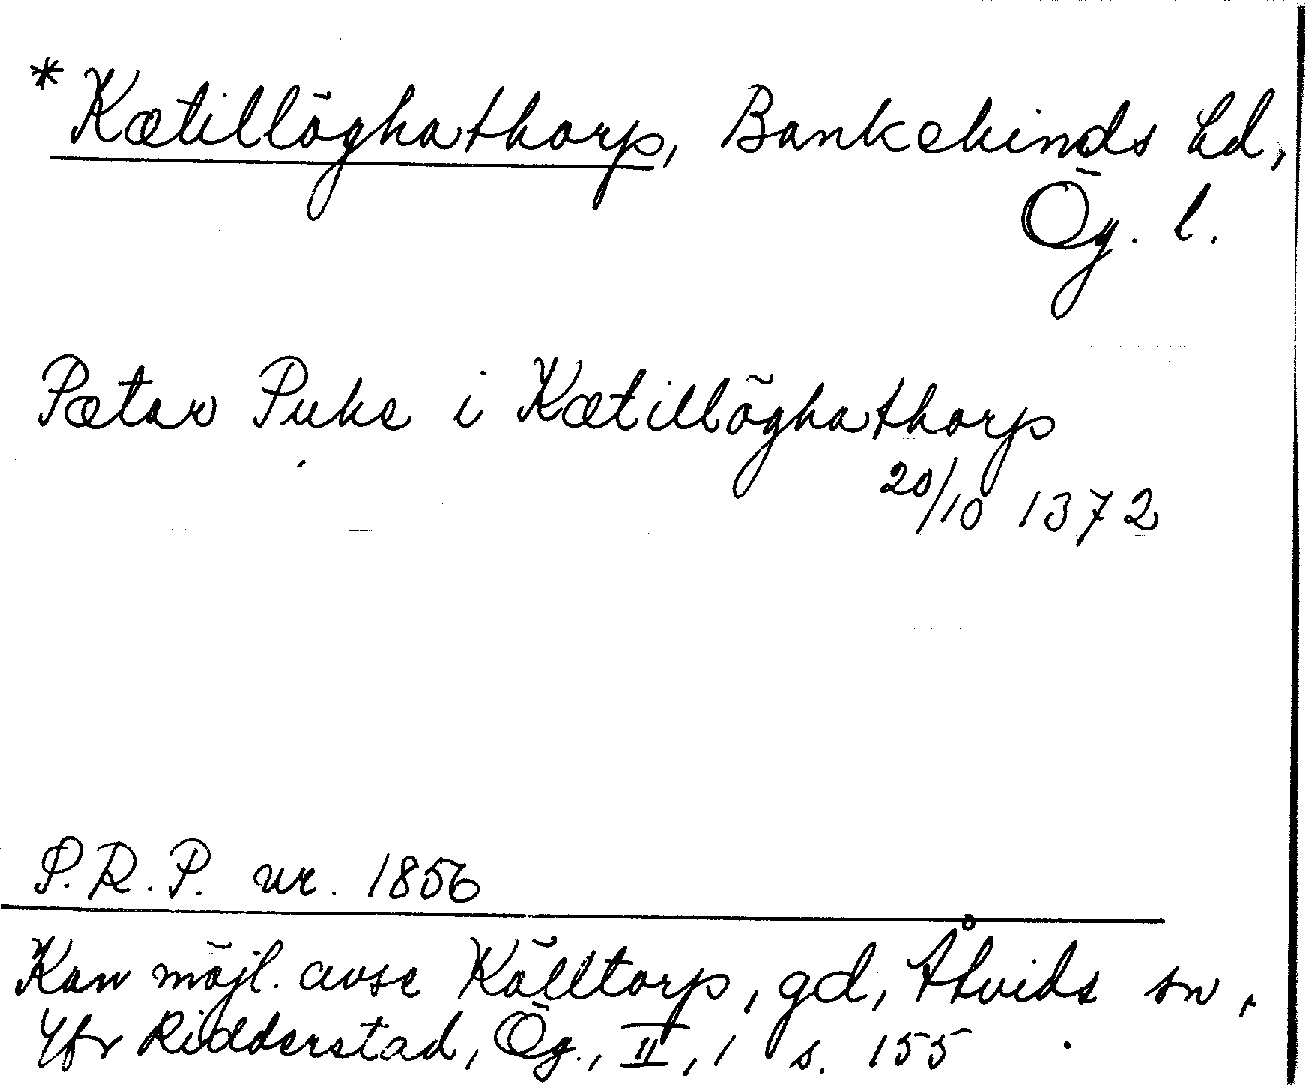 *Kætillöghathorp, Bankekinds hd,
Ög. l.
Pætar Puke i Kætillöghathorp
20/10 1372
P.R.P. nr. 1856
Kan möjl. avse Källtorp, gd, Åtvids sn,
Jfr Ridderstad, Ög., II, 1 s. 155